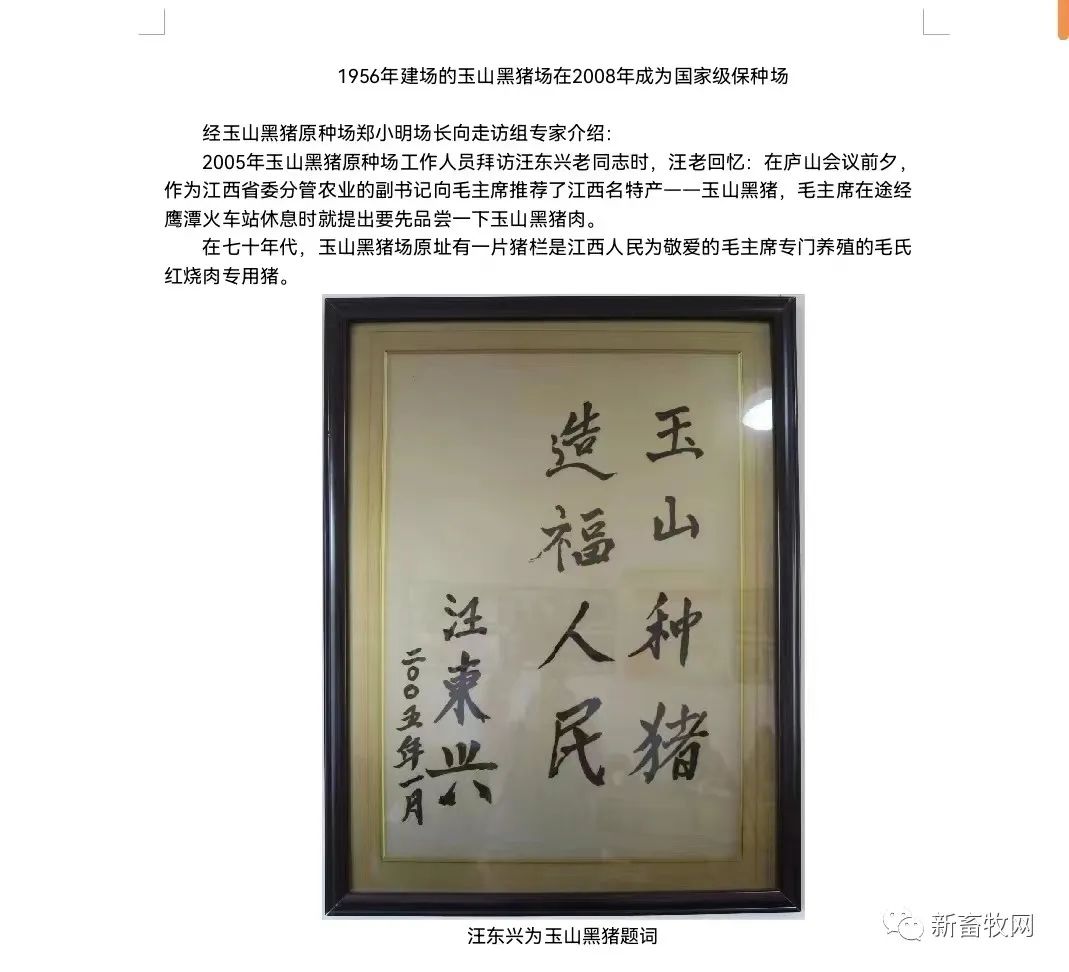 1956年建场的玉山黑猪场在2008年成为国家级保种场
经玉山黑猪原种场郑小明场长向走访组专家介绍：
2005年玉山黑猪原种场工作人员拜访汪东兴老同志时，汪老回忆：在庐山会议前夕，
作为江西省委分管农业的副书记向毛主席推荐了江西名特产——玉山黑猪，毛主席在途经
鹰潭火车站休息时就提出要先品尝一下玉山黑猪肉。
在七十年代，玉山黑猪场原址有一片猪栏是江西人民为敬爱的毛主席专门养殖的毛氏
红烧肉专用猪。
玉山种猪
造福人民
汪東兴
二〇〇五年一月
汪东兴为玉山黑猪题词
新畜牧网